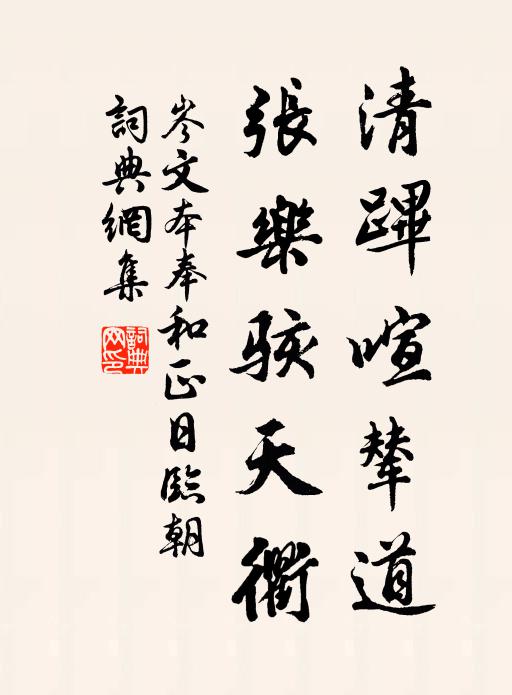 清蹕喧輦道
張樂駭天衢
岑文本奉和正日臨朝
詞典網集
詞典网印